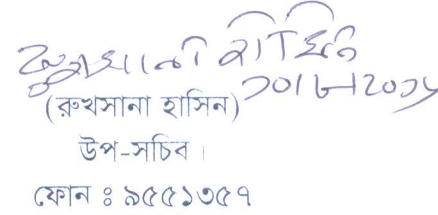 রুখসানা হাসিন
(রুখসানা হাসিন)
উপ-সচিব।
ফোন ঃ ৯৫৫১৩৫৭